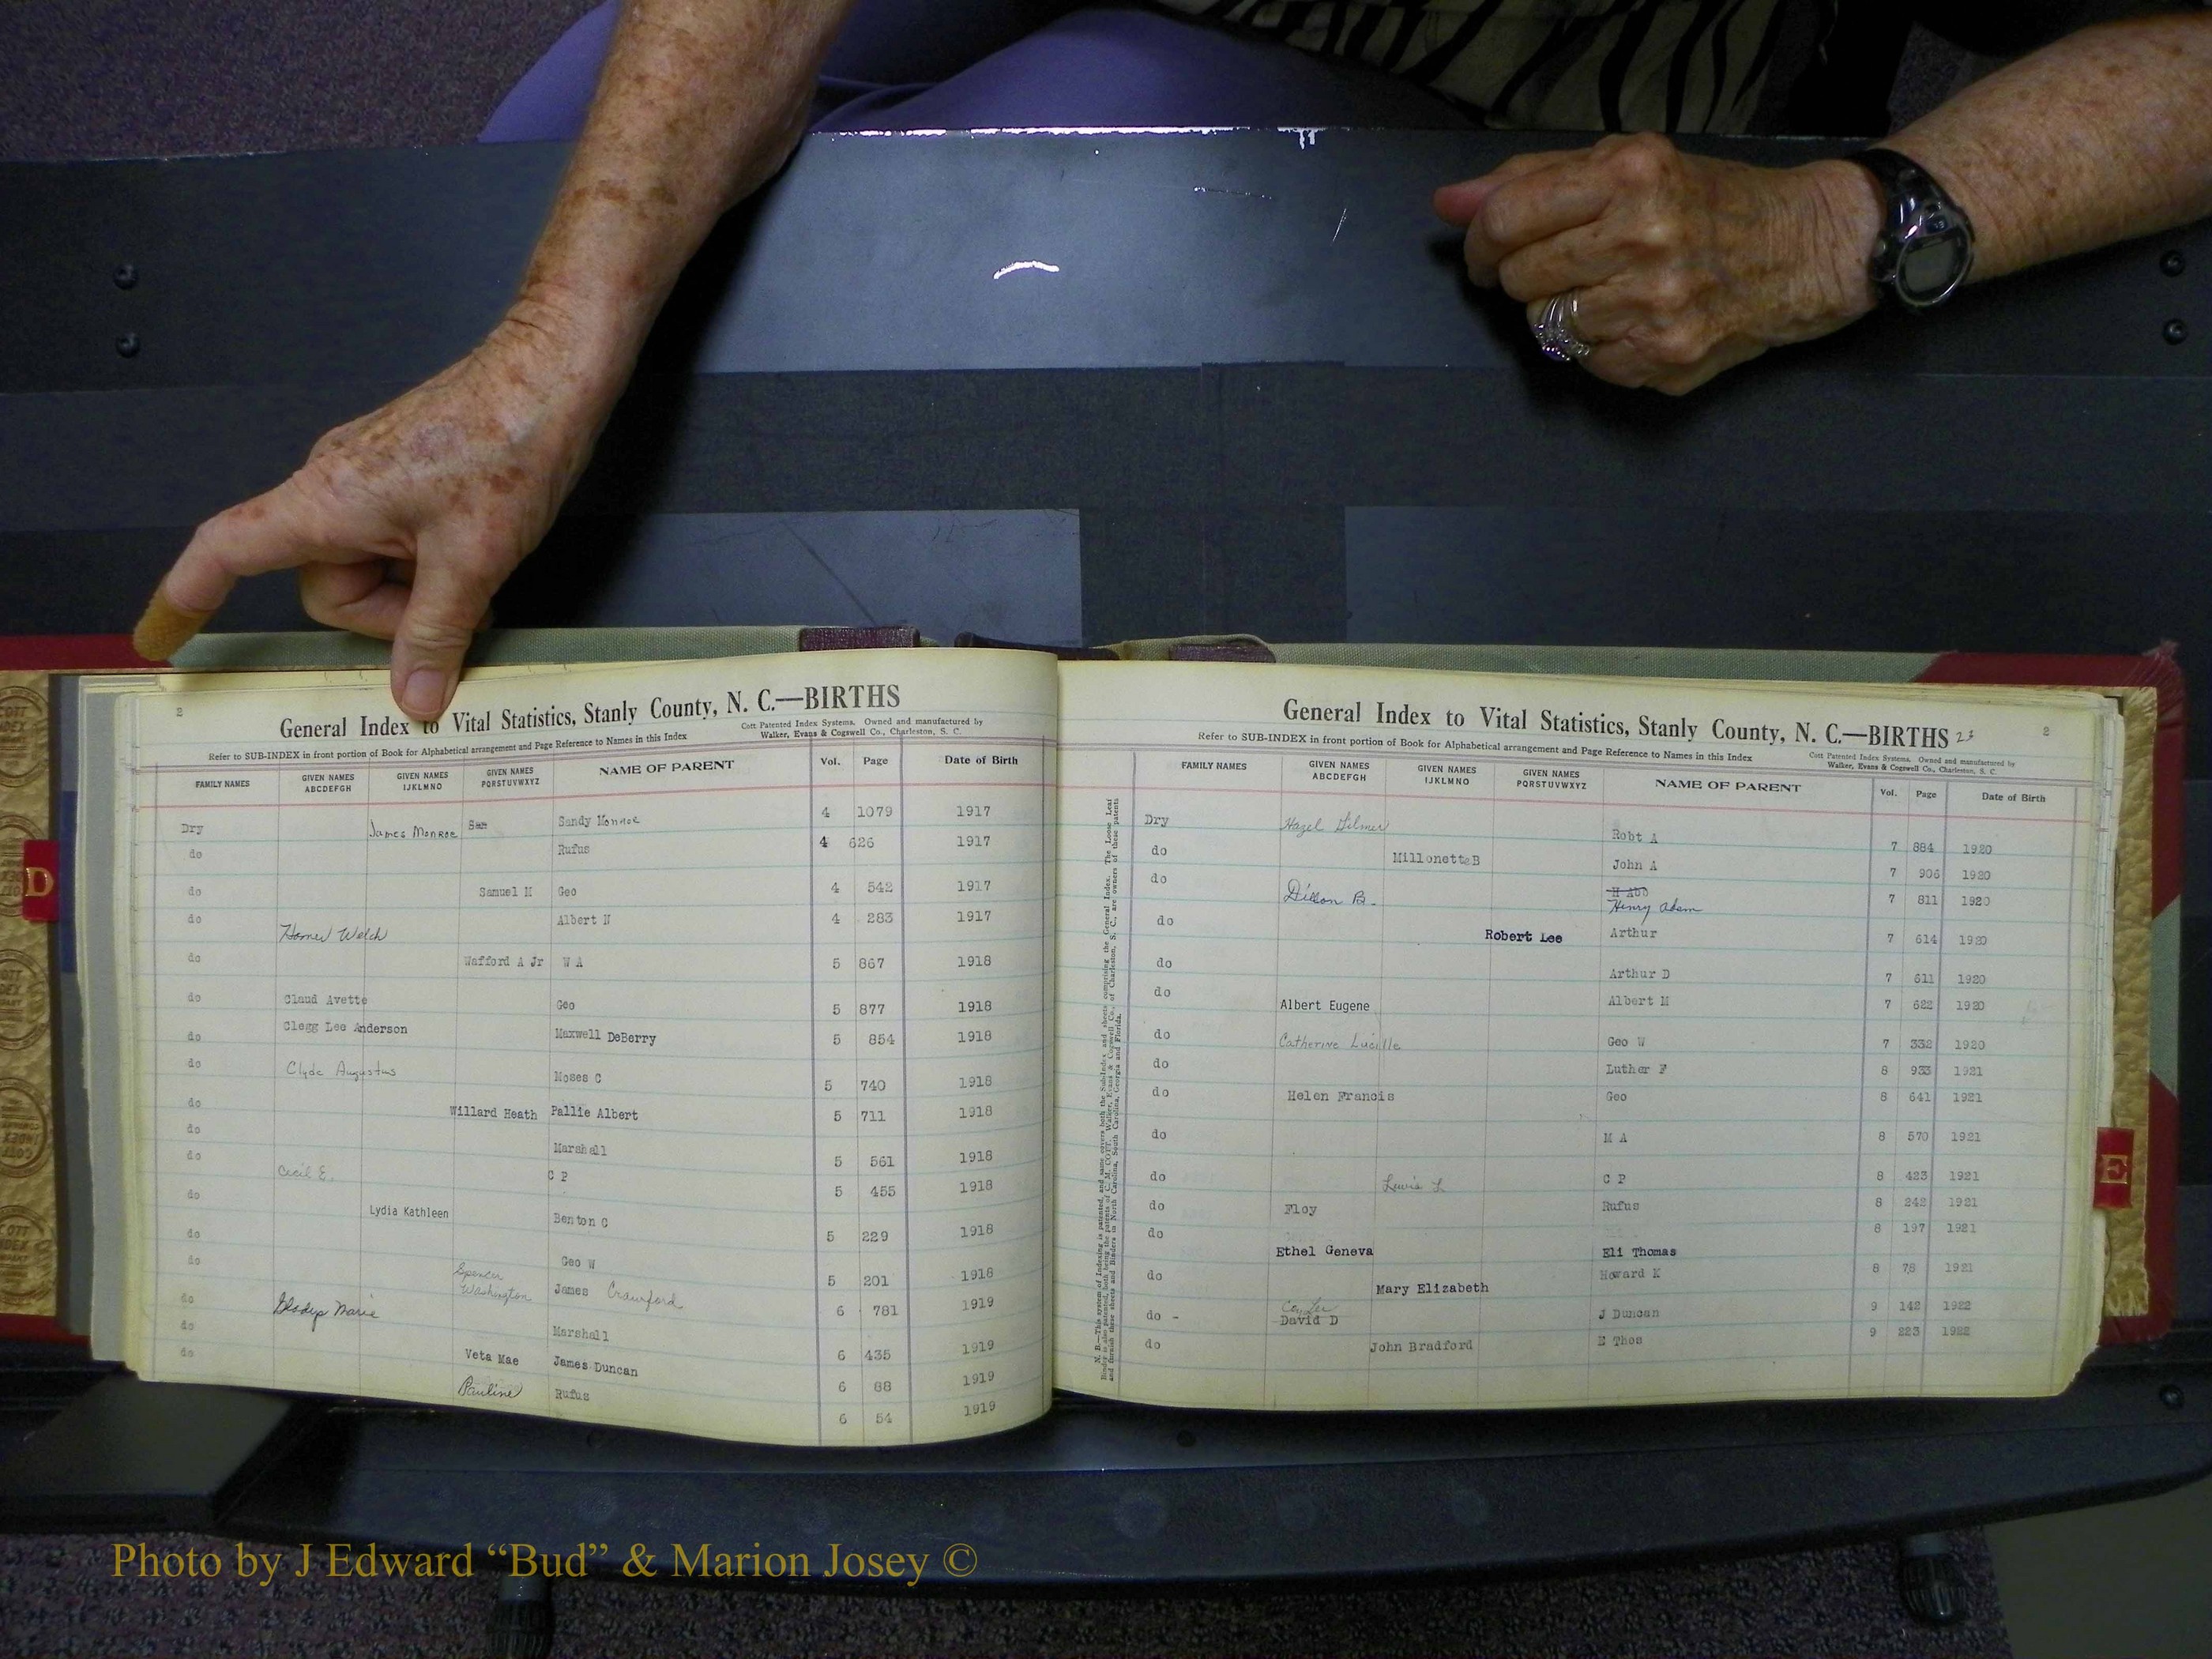 2
General Index to Vital Statistics, Stanly County, N. C.—BIRTHS
Refer to SUB-INDEX in front portion of Book for Alphabetical arrangement and Page Reference to Names in this Index
Cott Patented Index Systems. Owned and manufactured by
Walker, Evans & Cogswell Co., Charleston, S. C.
FAMILY NAMES GIVEN NAMES ABCDEFGH GIVEN NAMES IJKLMNO GIVEN NAMES PQRSTUVWXYZ NAME OF PARENT Vol. Page Date of Birth
Dry James Monroe Sam Sandy Monroe 4 1079 1917
do Rufus 4 626 1917
do Samuel M Geo 4 542 1917
do Homer Welch Albert N 4 283 1917
do Wafford A Jr W A 5 867 1918
do Claud Avette Geo 5 877 1918
do Clegg Lee Anderson Maxwell DeBerry 5 854 1918
do Clyde Augustus Moses C 5 740 1918
do Willard Heath Pallie Albert 5 711 1918
do Marshall 5 561 1918
do Cecil E. C P 5 455 1918
do Lydia Kathleen Benton C 5 229 1918
do Geo W 5 201 1918
do Spencer Washington James Crawford 6 781 1919
do Gladys Marie Marshall 6 435 1919
do Veta Mae James Duncan 6 88 1919
do Pauline Rufus 6 54 1919
D
General Index to Vital Statistics, Stanly County, N. C.—BIRTHS 23
2
Refer to SUB-INDEX in front portion of Book for Alphabetical arrangement and Page Reference to Names in this Index
Cott Patented Index Systems. Owned and manufactured by
Walker, Evans & Cogswell Co., Charleston, S. C.
FAMILY NAMES GIVEN NAMES ABCDEFGH GIVEN NAMES IJKLMNO GIVEN NAMES PQRSTUVWXYZ NAME OF PARENT Vol. Page Date of Birth
Dry Hazel Gilmer Robt A 7 884 1920
do Millonette B John A 7 906 1920
do Dillon B. Henry Adam 7 811 1920
do Robert Lee Arthur 7 614 1920
do Arthur D 7 611 1920
do Albert Eugene Albert M 7 622 1920
do Catherine Lucille Geo W 7 332 1920
do Luther F 8 933 1921
do Helen Francis Geo 8 641 1921
do M A 8 570 1921
do Lewis L C P 8 423 1921
do Floy Rufus 8 242 1921
do Ethel Geneva Eli Thomas 8 197 1921
do Mary Elizabeth Howard K 8 78 1921
do - David D J Duncan 9 142 1922
do John Bradford E Thos 9 223 1922
E
Photo by J Edward “Bud” & Marion Josey ©